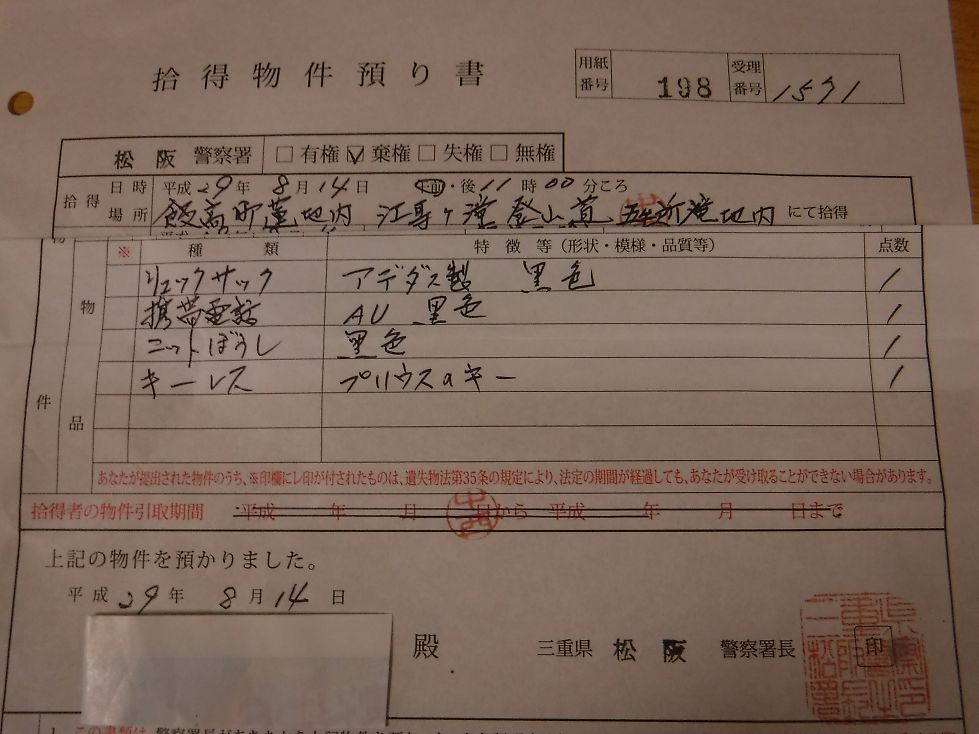 拾得物件預り書
用紙番号 198 受理番号 1571
松阪 警察署 □有権 ☑棄権 □失権 □無権
拾得 日時 平成29年 8月14日 午前・後11時00分ころ
場所 飯高町蓮地内 江馬ヶ滝登山道 五ヶ所滝地内 にて拾得
※ 種類 特徴等(形状・模様・品質等) 点数
物件 物品
リュックサック アデダス製 黒色 1
携帯電話 AU 黒色 1
ニットぼうし 黒色 1
キーレス プリウスのキー 1
あなたが提出された物件のうち、※印欄にレ印が付されたものは、遺失物法第35条の規定により、法定の期間が経過しても、あなたが受け取ることができない場合があります。
拾得者の物件引取期間 平成 年 月 日から 平成 年 月 日まで
中西
上記の物件を預かりました。
平成29年 8月14日
殿 三重県 松阪 警察署長 印